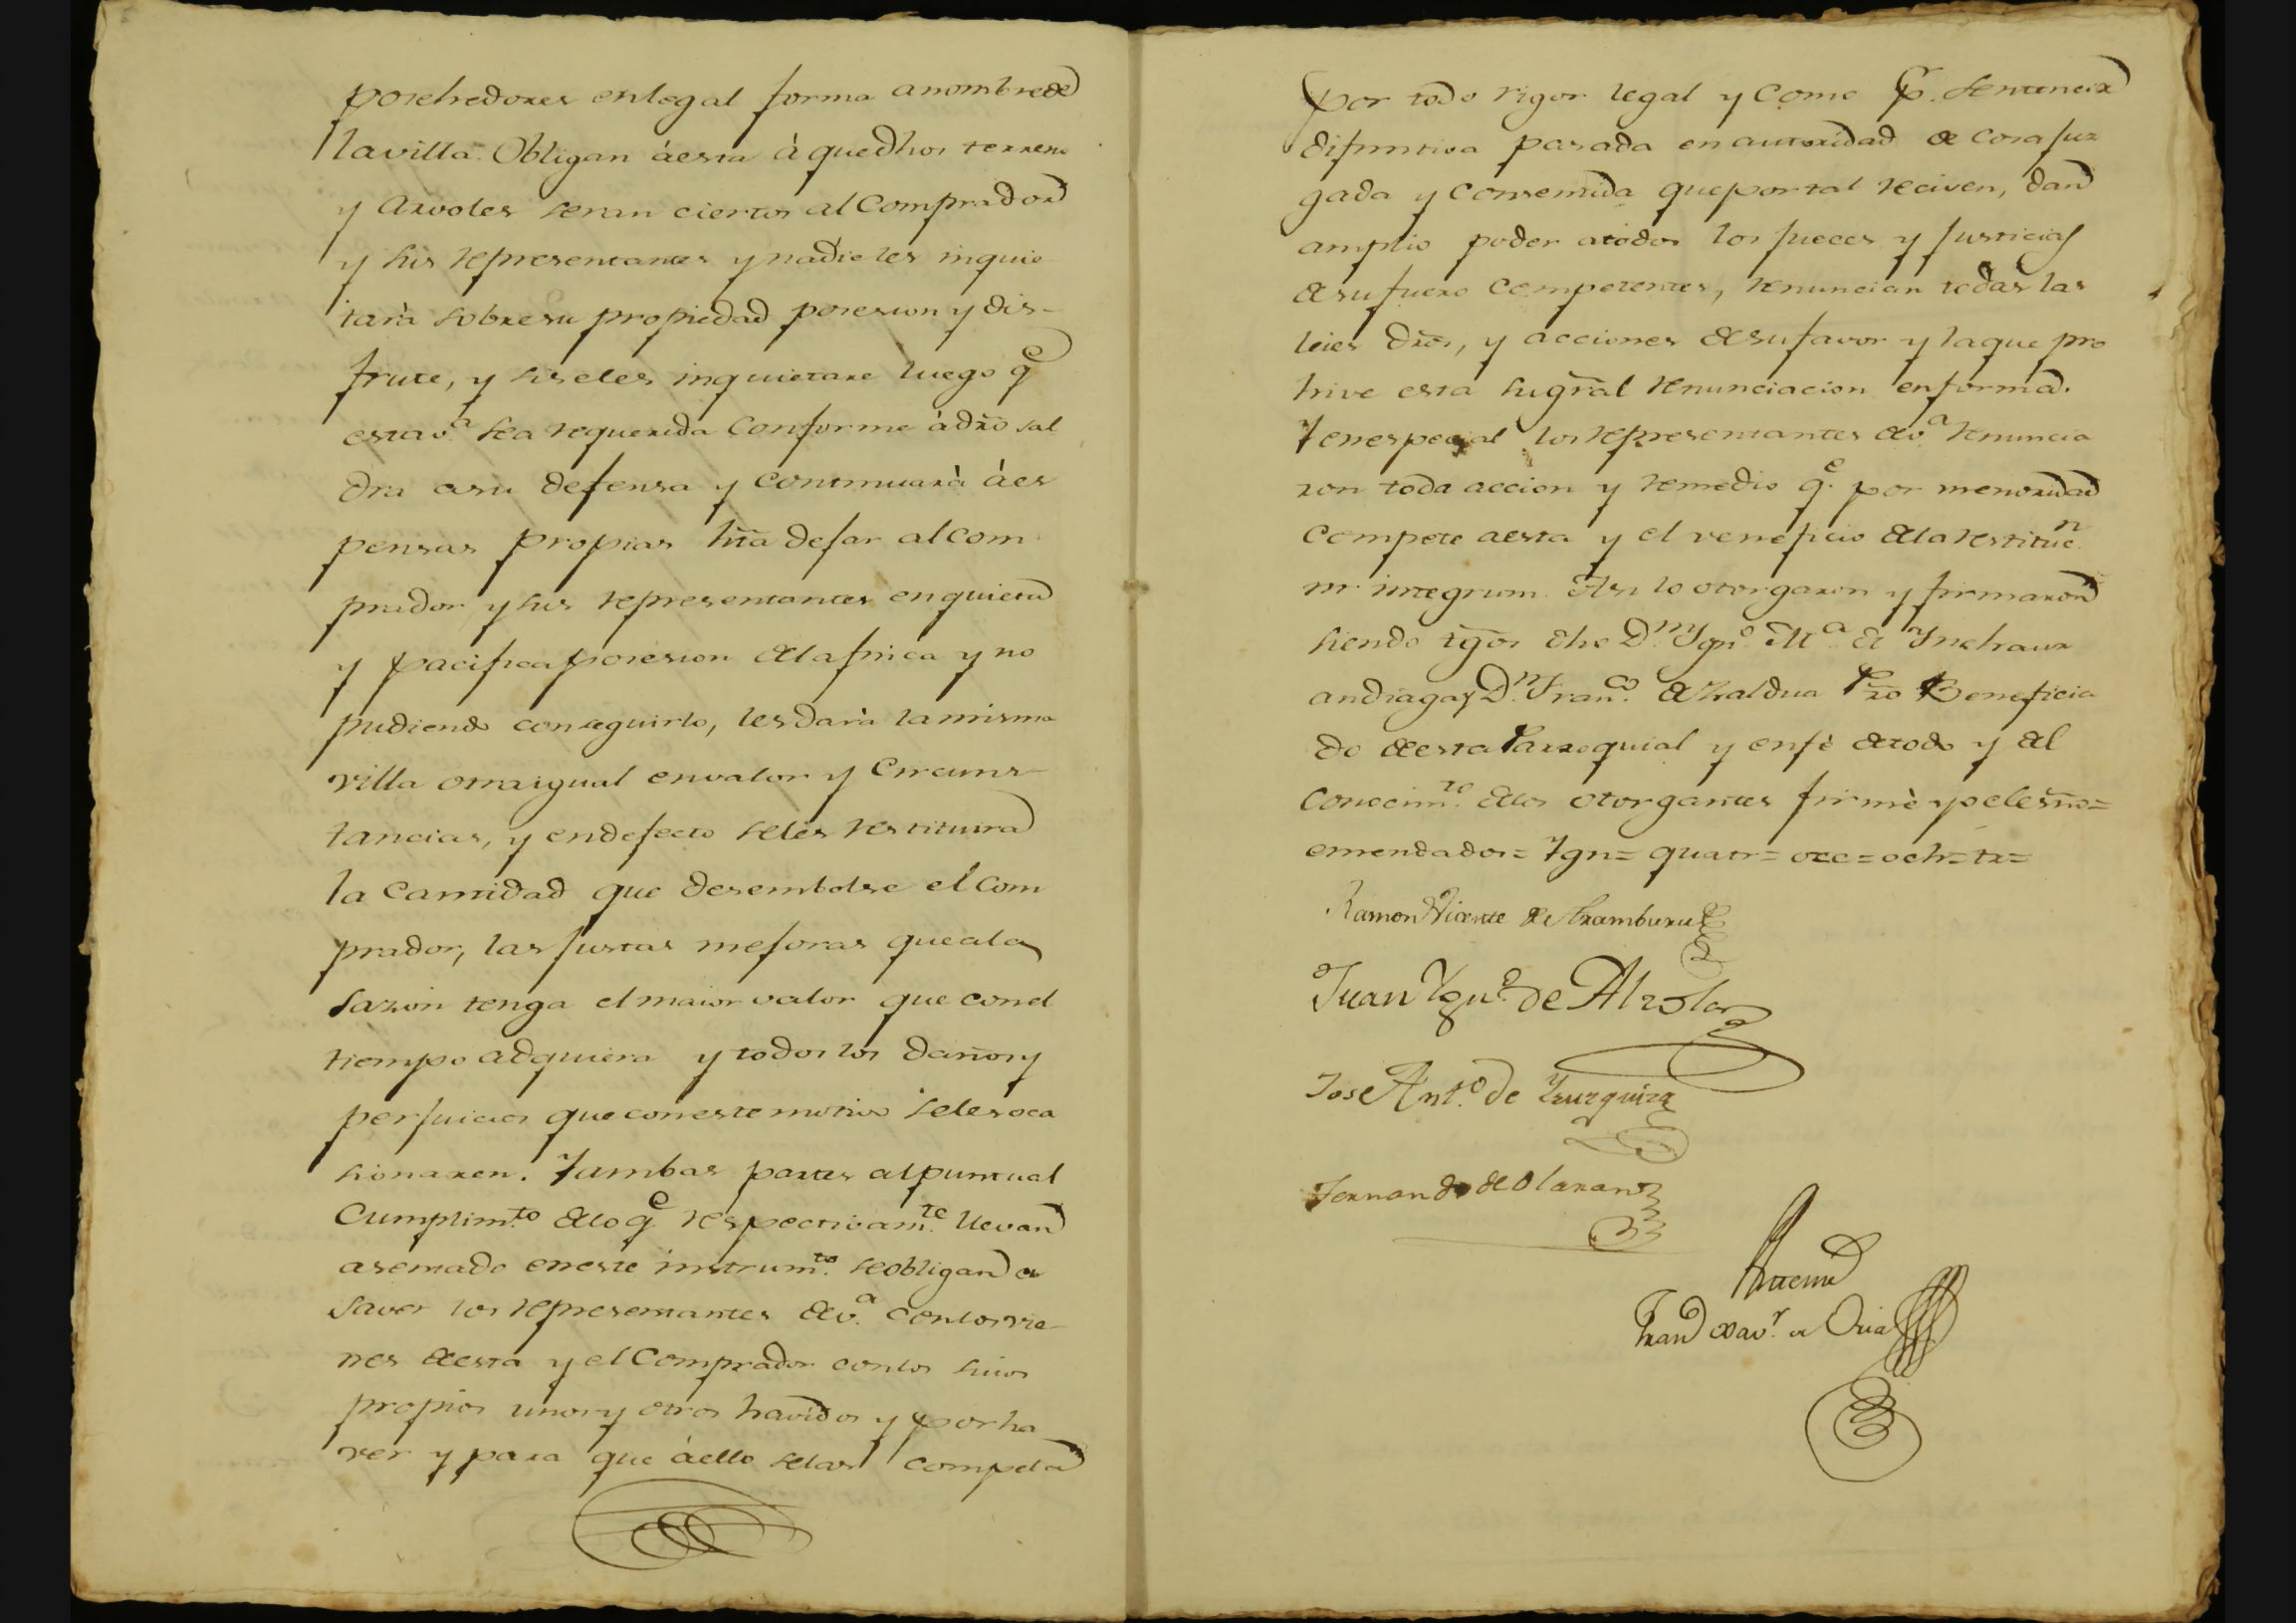 posehedores en legal forma a nombre de
la villa. Obligan á esta à que dhos terreno
y Arvoles seran ciertos al Comprador
y sus representantes y nadie les inquie
tarà sobre su propiedad posesion y dis-
frute, y si se les inquietare luego q.e
esta v.a sea requerida Conforme à dro sal
dra a su defensa y Continuarà à es
pensas propias hta dejar al com
prador y sus representantes en quieta
y pacifica posesion de la finca y no
pudiendo conseguirlo, les darà la misma
villa otra igual en valor y Circuns-
tancias, y en defecto se les restituira
la Cantidad que desembolse el Com
prador, las justas mejoras que a la
sazon tenga el maior valor que con el
tiempo adquiera y todos los daños y
perjuicios que con este motivo se les oca
sionaren. Y ambas partes al puntual
Cumplim.to de lo q.e respectivam.te llevan
asentado en este instrum.to se obligan a
saver los representantes de v.a con los vie-
nes de esta y el Comprador con los suios
propios unos y otros havidos y por ha
ver y para que à ello se las compela
por todo rigor legal y Como p. Sentencia
difinitiva pasada en autoridad de cosa juz
gada y consentida que por tal reciven, dan
amplio poder a todos los jueces y justicias
de su fuero competentes, renuncian todas las
leies dros, y acciones de su favor y la que pro
hive esta su gral renunciacion en forma.
Y en especial los representantes de v.a renuncia
ron toda accion y remedio q.e por menoridad
compete a esta y el veneficio de la restituc.n
in integrum. Asi lo otorgaron y firmaron
siendo tgos dho D.n Ygn.o M.a de Ynchaur
andiaga y D.n Fran.co de Zaldua Pro Beneficia
do de esta Parroquial y en fè de todo y del
conocim.to de los otorgantes firmè yo el esno=
emendados= Ygn= quatr= oze= och= tr=
Ramon Vicente de Aramburu
Juan Ygn.o de Alzola
Jose Ant.o de Yzurquiza
Fernando de Olaran
Ante mi
Fran Xav.r de Oria